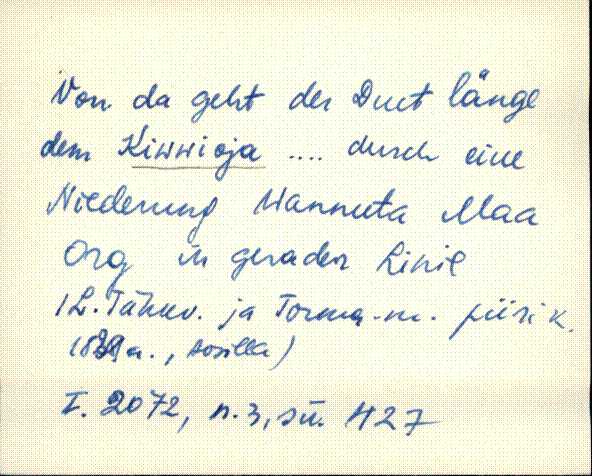 Von da geht der Duct länge
dem Kiwwioja .... durch eine
Niederung Wannuta Maa
Org in gerader Linie
(L. Tähkv. ja Torma-m. piiri k.
a., )
I. 2072, n. 3, sü. 427